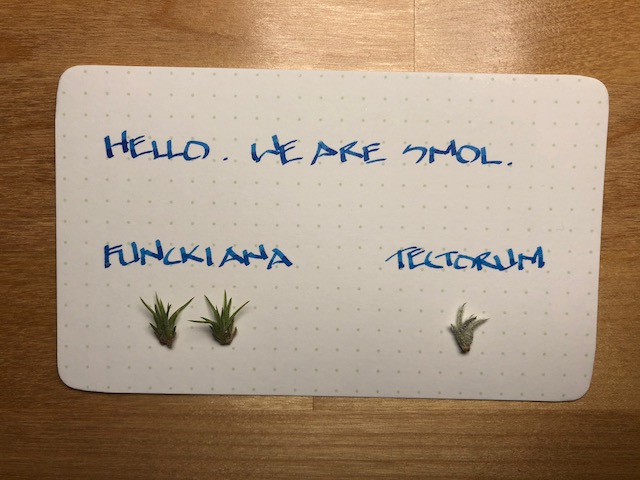 HELLO. WE ARE SMOL.
FUNCKIANA TECTORUM